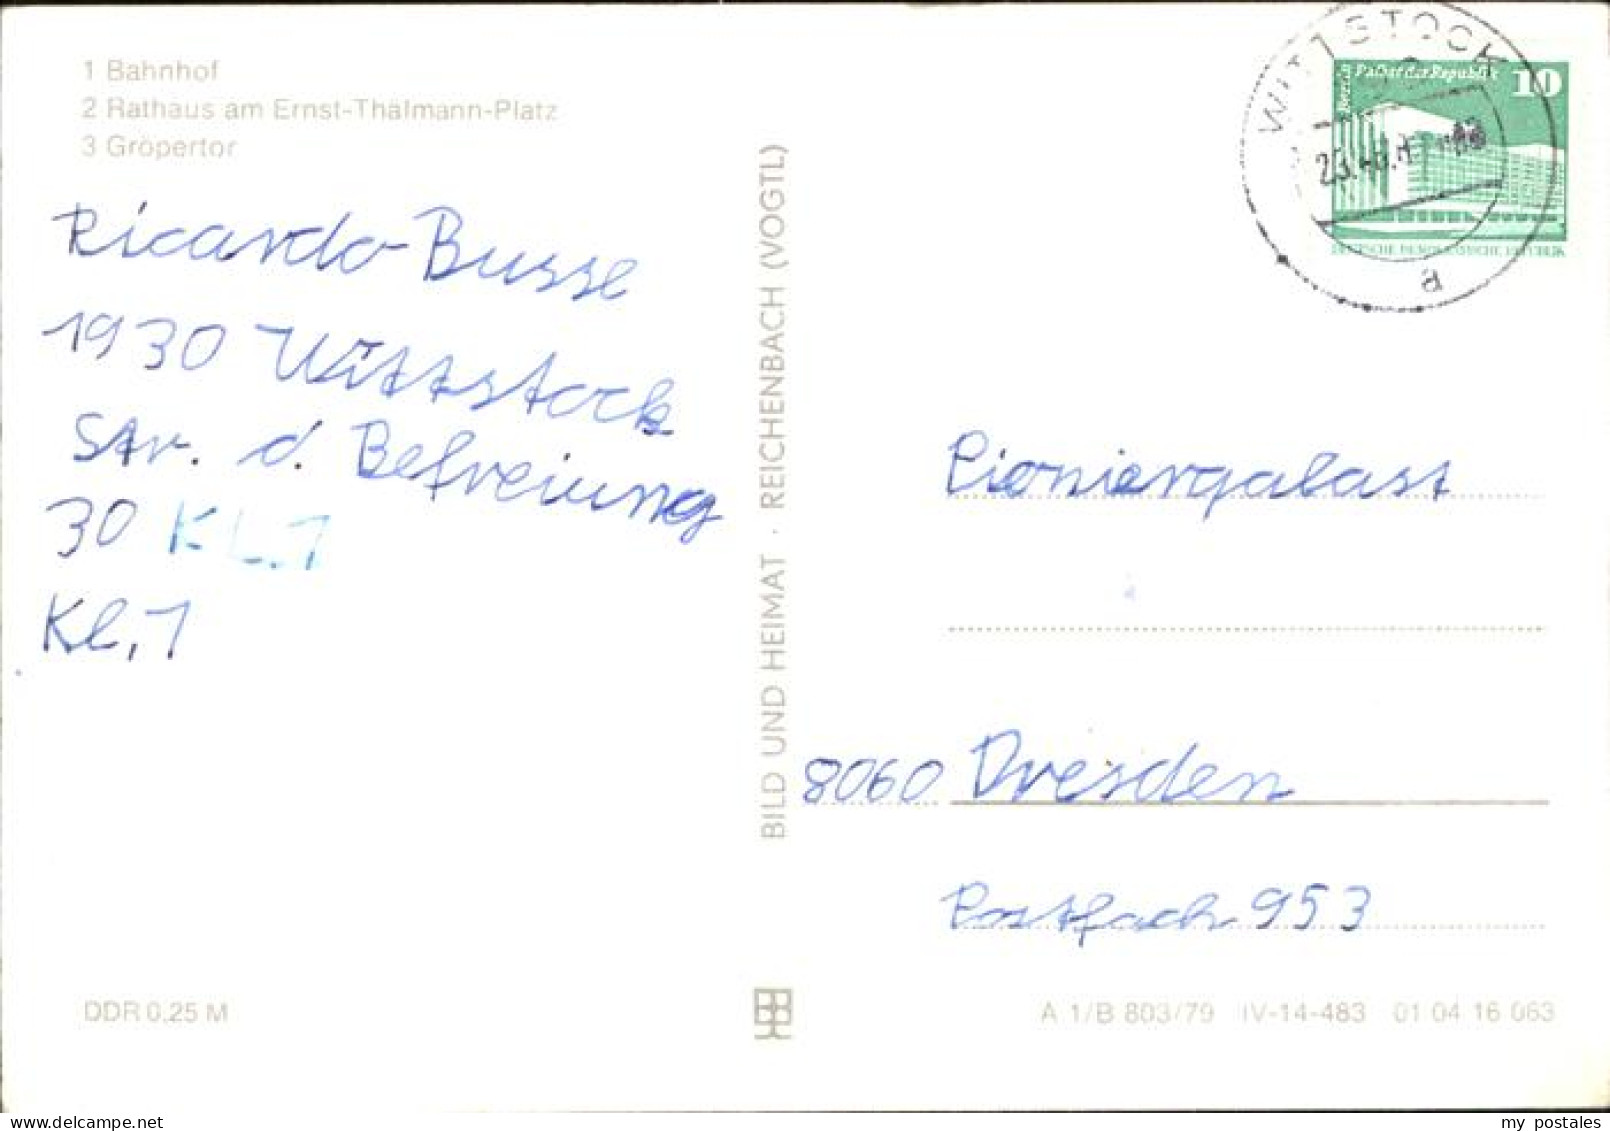 1 Bahnhof
2 Rathaus am Ernst-Thälmann-Platz
3 Gröpertor
Ricardo Busse
1930 Wittstock
Str. d. Befreiung
30 KL.1
Kl.1
BILD UND HEIMAT · REICHENBACH (VOGTL)
WITTSTOCK
a
Berlin Palast der Republik 10
DEUTSCHE DEMOKRATISCHE REPUBLIK
Pioniergalast
8060 Dresden
Postfach 953
DDR 0,25 M
A 1/B 803/79 IV-14-483 01 04 16 063
my postales